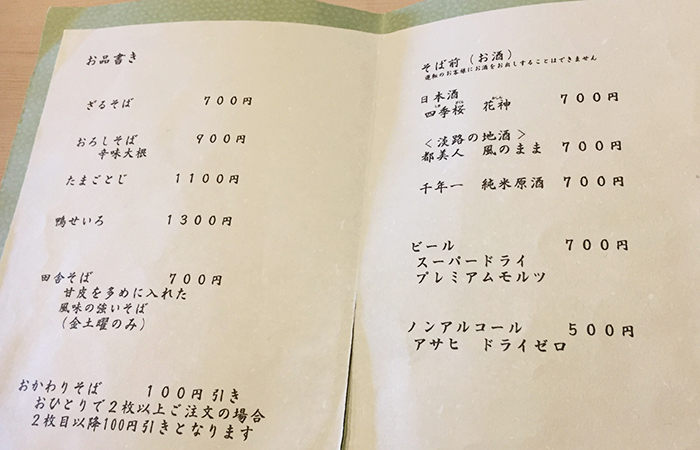 お品書き
ざるそば 700円
おろしそば 900円
辛味大根
たまごとじ 1100円
鴨せいろ 1300円
田舎そば 700円
甘皮を多めに入れた
風味の強いそば
(金土曜のみ)
おかわりそば 100円引き
おひとりで2枚以上ご注文の場合
2枚目以降100円引きとなります
そば前(お酒)
運転のお客様にお酒をお出しすることはできません
日本酒
四季桜 花神 700円
<淡路の地酒>
都美人 風のまま 700円
千年一 純米原酒 700円
ビール 700円
スーパードライ
プレミアムモルツ
ノンアルコール 500円
アサヒ ドライゼロ